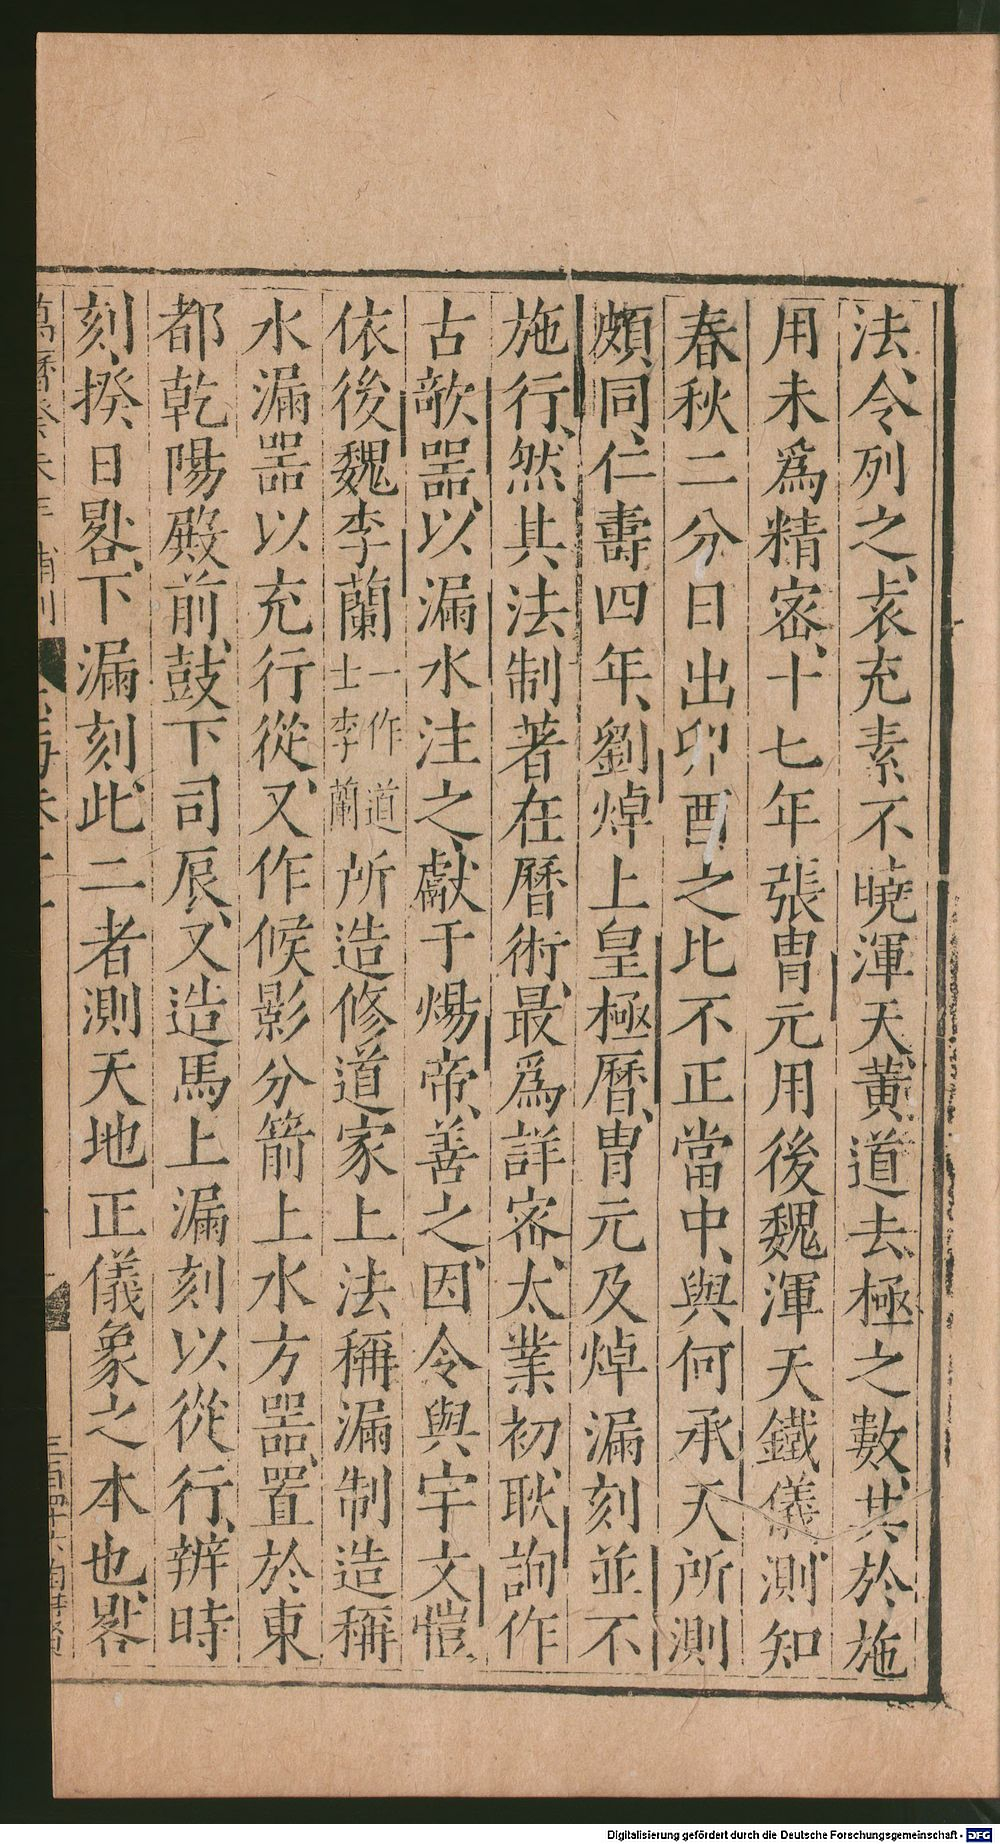 法、令列之、袁充素不曉渾天黃道去極之數、其於施
用未爲精密、十七年張胄元用後魏渾天鐵儀測知
春秋二分日出卯酉之比不正當中、與何承天所測
頗同、仁壽四年、劉焯上皇極曆、胄元及焯漏刻並不
施行、然其法制著在曆術、最爲詳密、太業初耿詢作
古欹器、以漏水注之、獻于煬帝、善之、因令與宇文愷、
依後魏李蘭一作道士李蘭所造修道家上法稱漏制造稱
水漏器以充行從、又作候影分箭上水方器、置於東
都乾陽殿前、鼓下司辰、又造馬上漏刻以從行、辨時
刻、揆日晷、下漏刻、此二者測天地正儀象之本也、晷
萬曆癸未年補刊
Digitalisierung gefördert durch die Deutsche Forschungsgemeinschaft - DFG